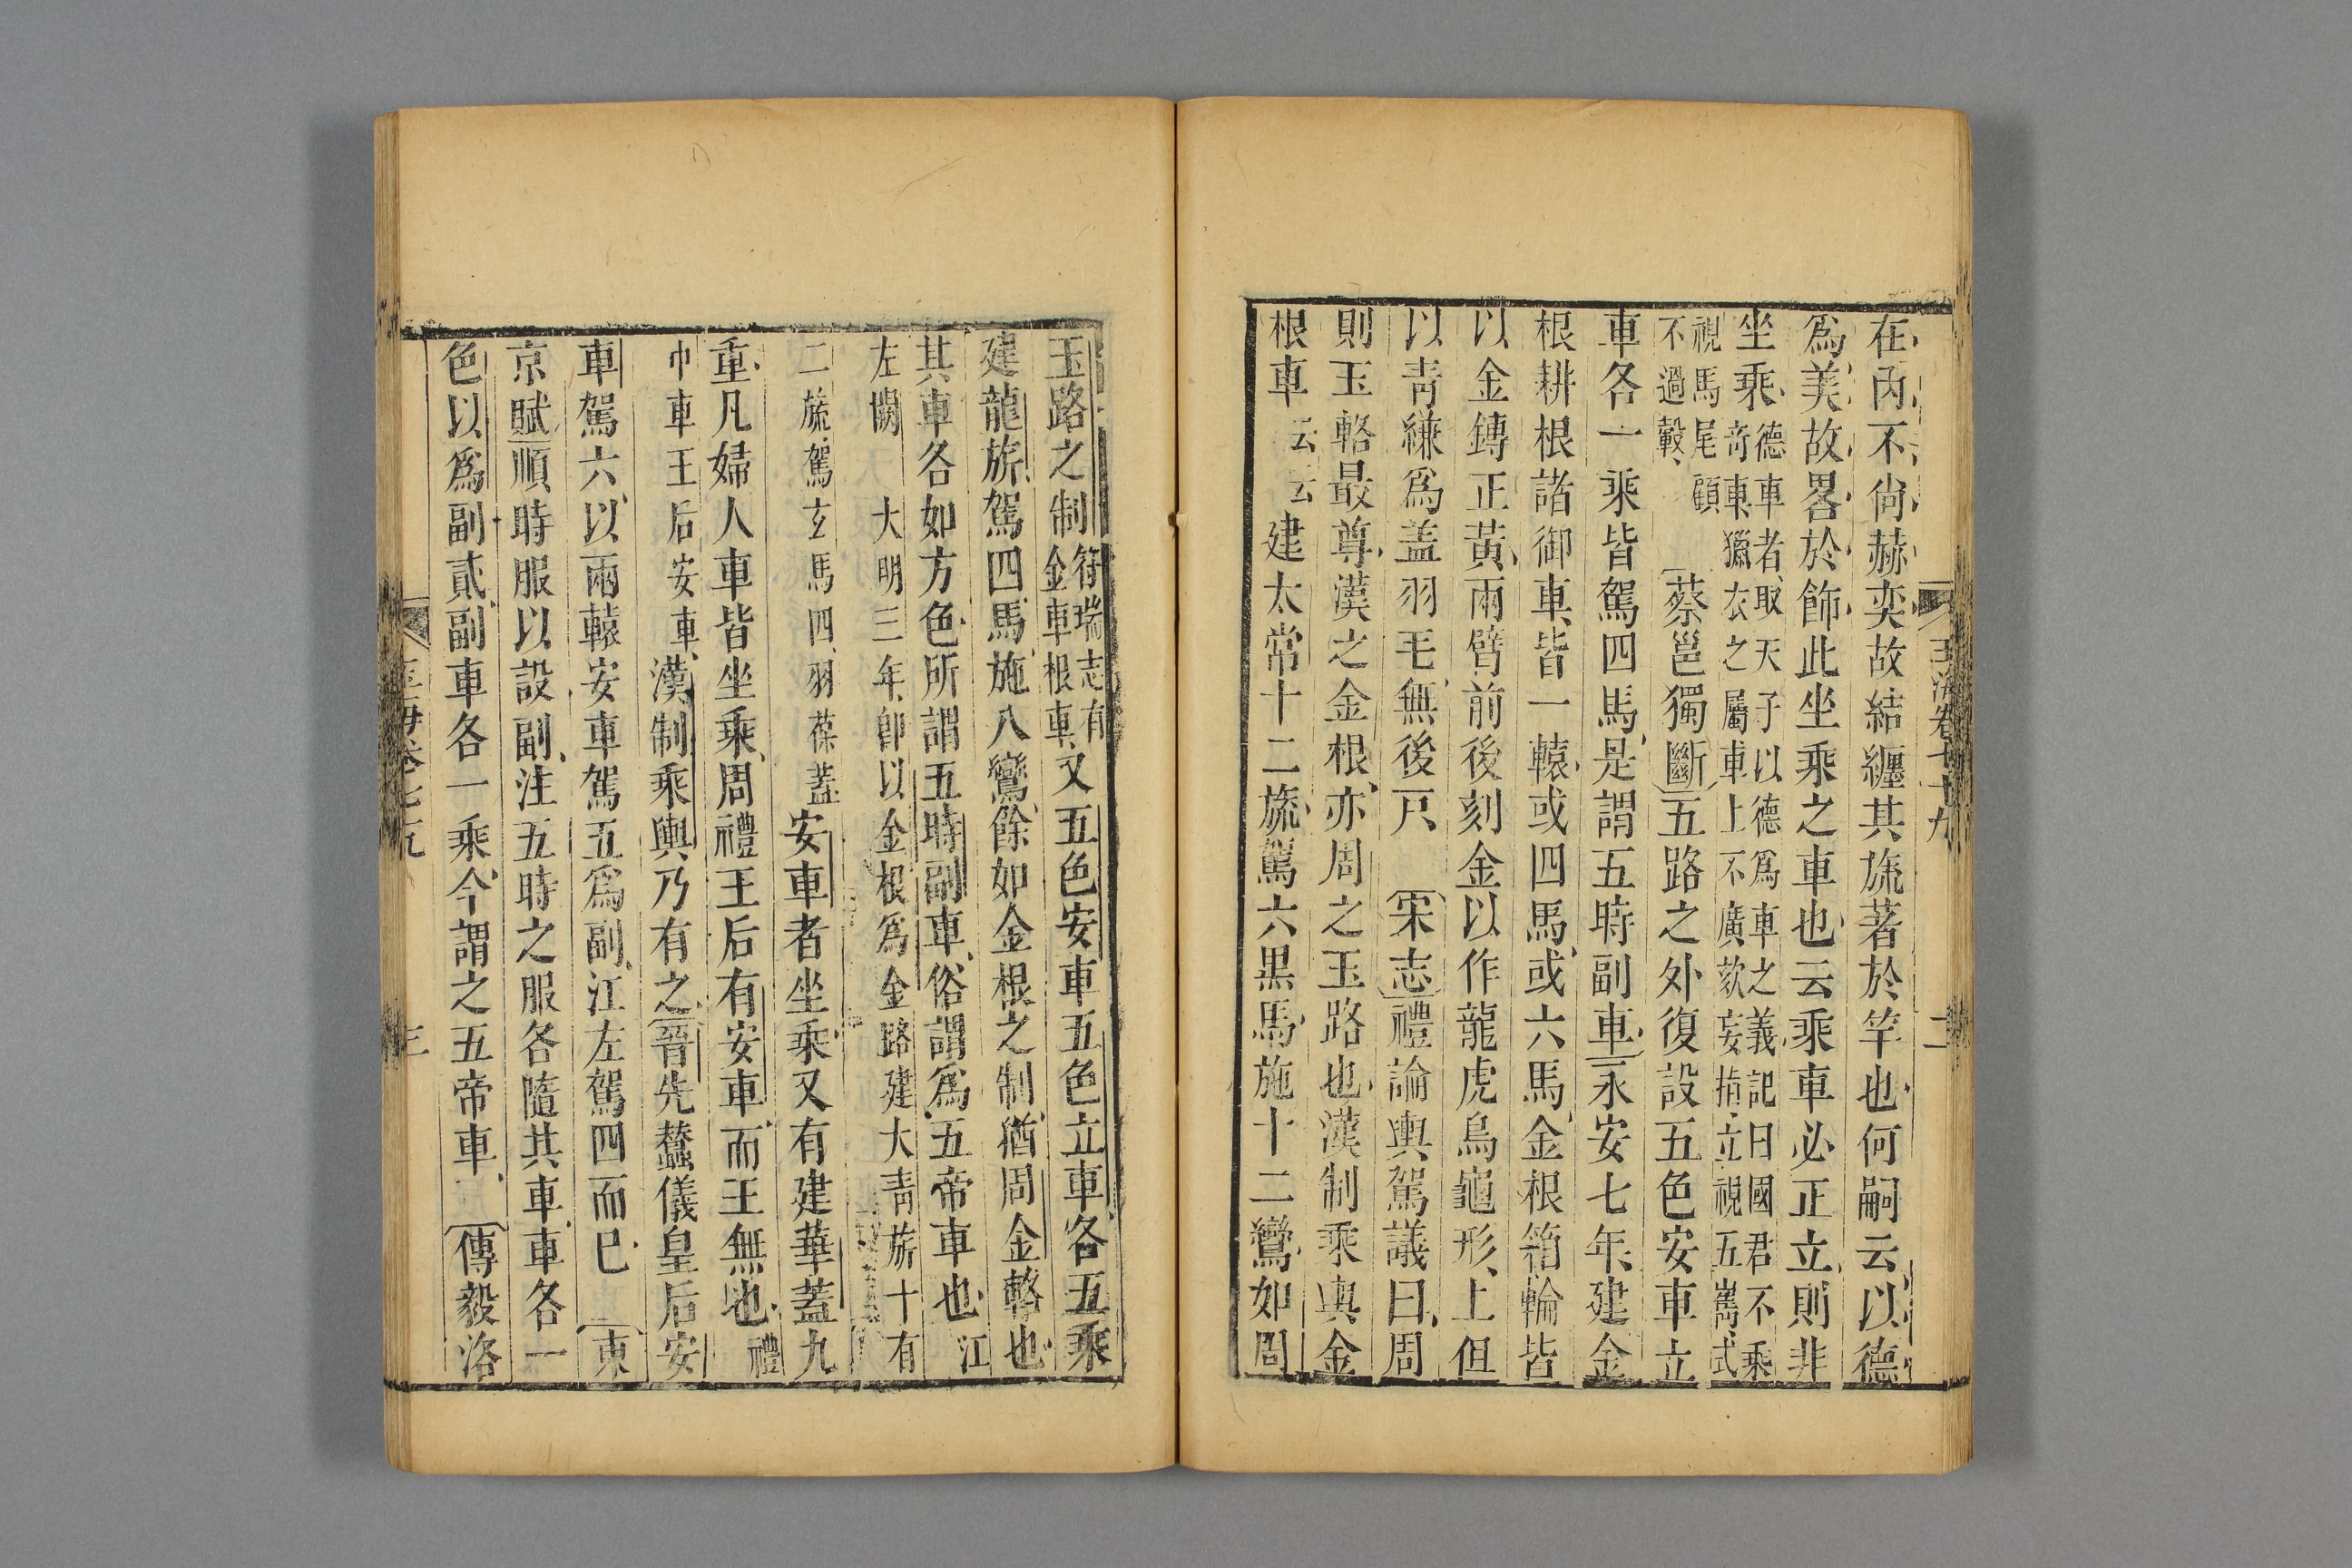 玉海卷七十九
二
在内不尚赫奕故結纏其旒著於竿也何嗣云以德
爲美故畧於飾此坐乘之車也云乘車必正立則非
坐乘德車者取天子以德爲車之義記曰國君不乘
奇車獵衣之屬車上不廣欬妄指立視五巂式
視馬尾顧
不過轂蔡邕獨斷五路之外復設五色安車立
車各一乘皆駕四馬是謂五時副車永安七年建金
根耕根諸御車皆一轅或四馬或六馬金根箱輪皆
以金鏄正黃兩臂前後刻金以作龍虎鳥龜形上但
以靑縑爲盖羽毛無後戸宋志禮論輿駕議曰周
則玉輅最尊漢之金根亦周之玉路也漢制乘輿金
根車云云建太常十二旒駕六黒馬施十二鸞如周
玉路之制符瑞志有
金車根車又五色安車五色立車各五乘
建龍旂駕四馬施八鸞餘如金根之制猶周金輅也
其車各如方色所謂五時副車俗謂爲五帝車也江
左闕大明三年卽以金根爲金路建大靑旂十有
二旒駕玄馬四羽葆蓋安車者坐乘又有建華蓋九
重凡婦人車皆坐乘周禮王后有安車而王無也禮
巾車王后安車漢制乘輿乃有之晉先蠶儀皇后安
車駕六以兩轅安車駕五爲副江左駕四而已東
京賦順時服以設副注五時之服各隨其車車各一
色以爲副貳副車各一乘今謂之五帝車傳毅洛
三